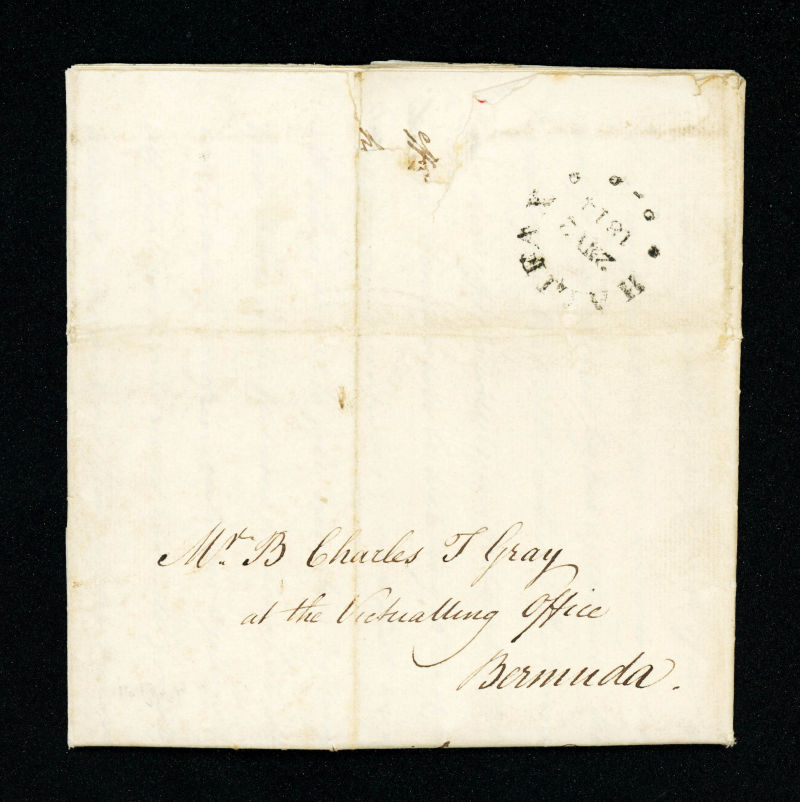 HALIFAX
1814
Mr. B Charles T Gray
at the Victualling Office
Bermuda.